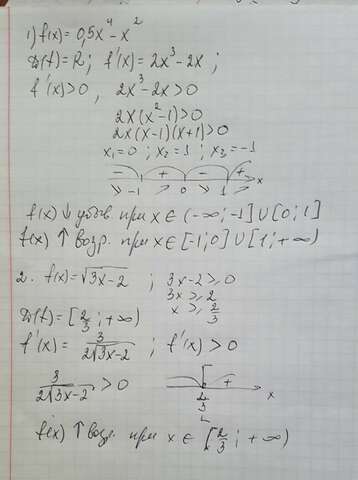 1) f(x) = 0,5x⁴ - x²
D(f) = R; f'(x) = 2x³ - 2x ;
f'(x) > 0 , 2x³ - 2x > 0
2x(x² - 1) > 0
2x(x-1)(x+1) > 0
x₁ = 0 ; x₂ = 1 ; x₃ = -1
- + - +
↘ -1 ↗ 0 ↘ 1 ↗ x
f(x) ↓ убыв. при x ∈ (-∞; -1] ∪ [0; 1]
f(x) ↑ возр. при x ∈ [-1; 0] ∪ [1; +∞)
2. f(x) = √3x-2 ; 3x-2 ≥ 0
3x ≥ 2
x ≥ 2/3
D(f) = [2/3 ; +∞)
f'(x) = 3/2√3x-2 ; f'(x) > 0
3/2√3x-2 > 0
+
2/3 x
f(x) ↑ возр. при x ∈ [2/3 ; +∞)